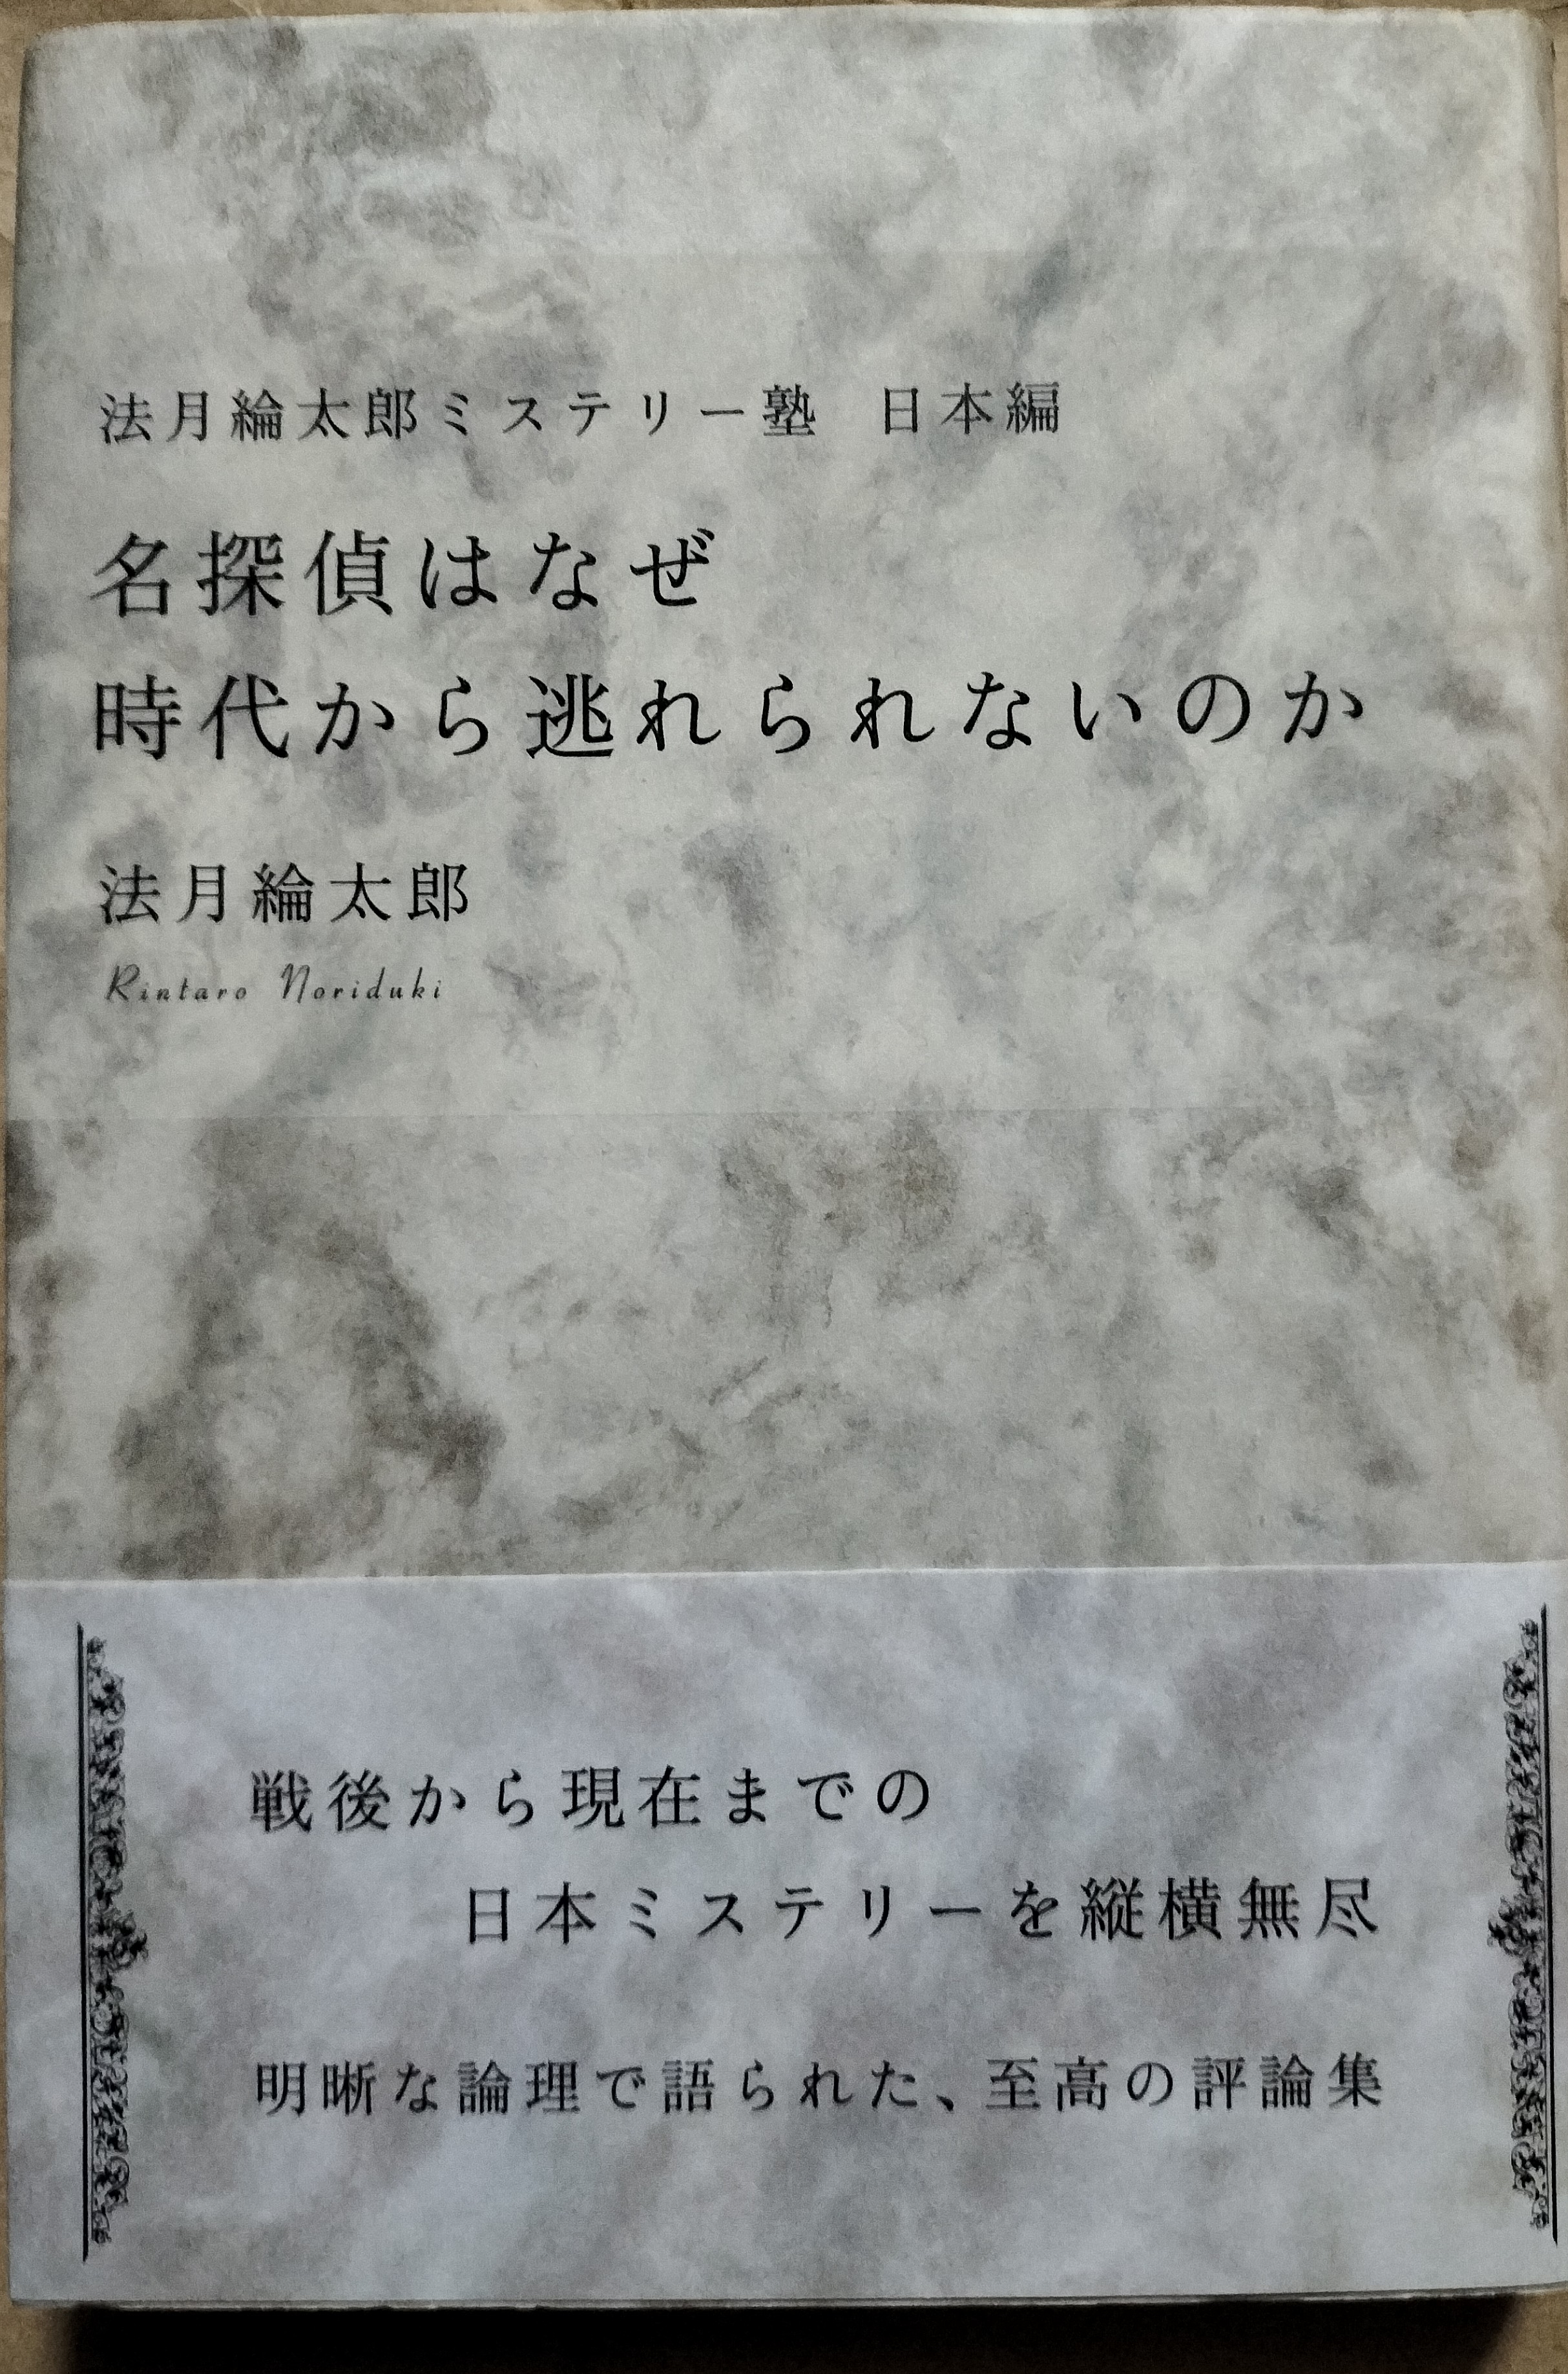 法月綸太郎ミステリー塾　日本編
名探偵はなぜ
時代から逃れられないのか
法月綸太郎
Rintaro Noriduki
戦後から現在までの
日本ミステリーを縦横無尽
明晰な論理で語られた、至高の評論集